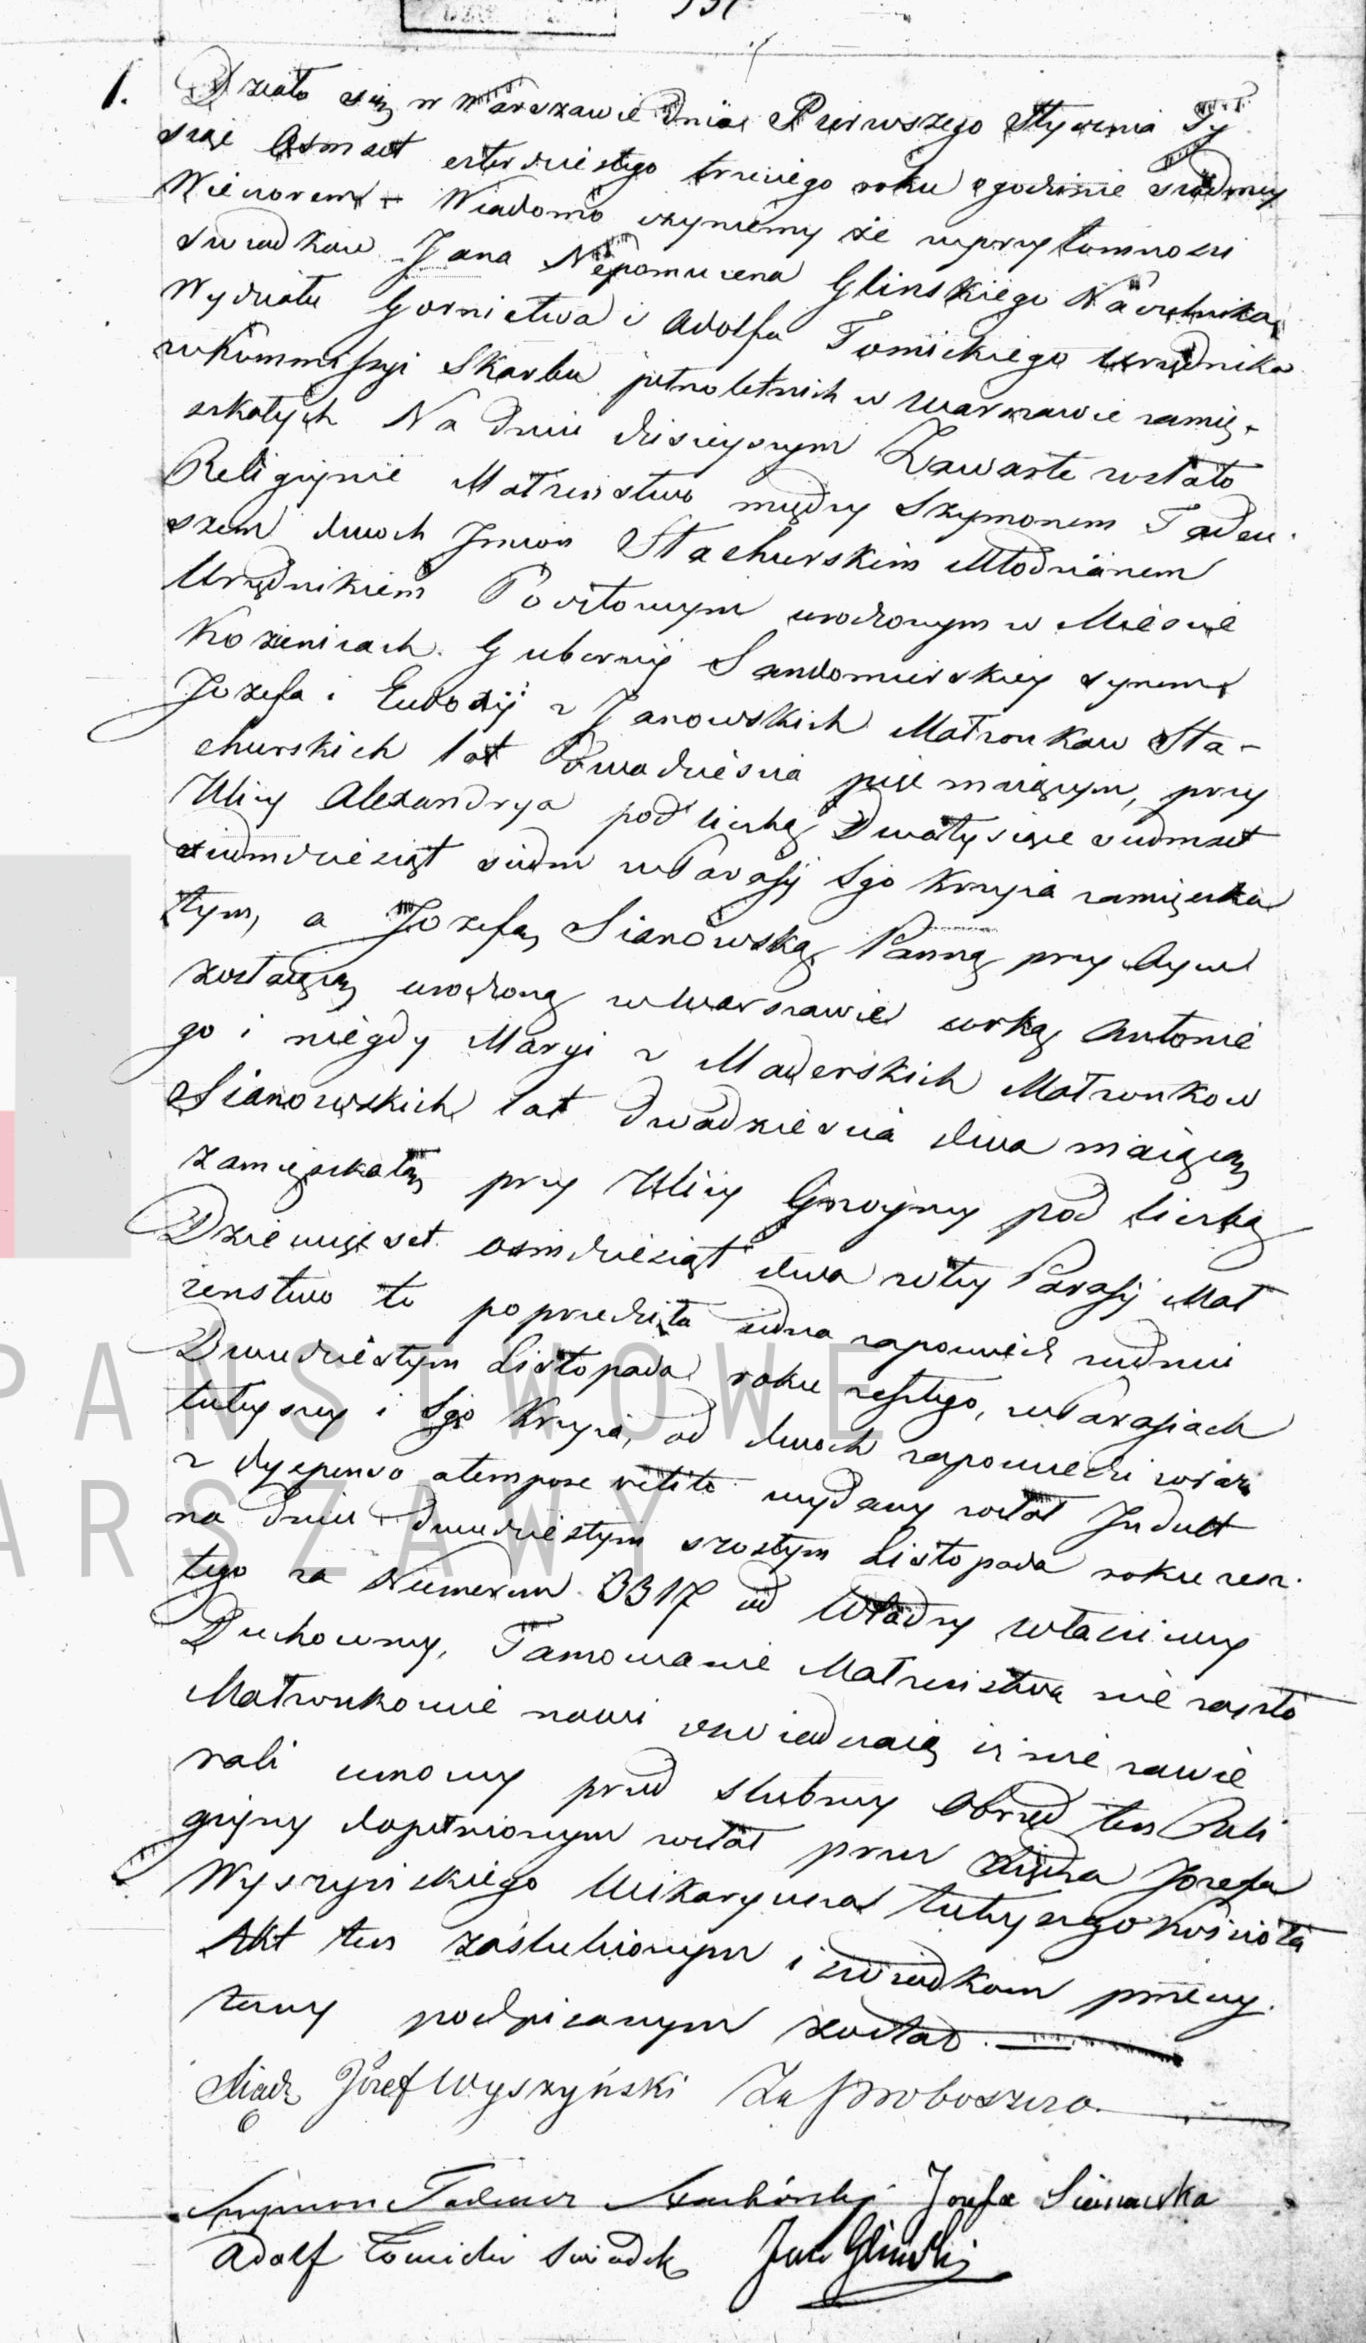 1. Działo się w Warszawie dnia Pierwszego Stycznia Ty
siąc Osmset czterdziestego trzeciego roku o godzinie siódmey
Wieczorem – Wiadomo czyniemy że w przytomności
swiadkow Jana Nepomucena Glinskiego Naczelnika
Wydziału Gornictwa i Adolfa Tomickiego Urzędnika
w Kommissyi Skarbu pełnoletnich w Warszawie zamię-
szkałych Na dniu dzisieyszym Zawarte zostało
Religijnie Małżeństwo między Szymonem Tadeu-
szem dwoch Imion Stachurskim Młodzianem
Urzędnikiem Pocztowym urodzonym w Miescie
Kozienicach Gubernij Sandomierskiey synem
Jozefa i Eudoxij z Janowskich Małżonkow Sta-
churskich lat Dwadziescia pięć maiącym, przy
Ulicy Alexandrya pod liczbą Dwa tysiące siedmset
siedmdziesiąt siedm w Parafij Sgo Krzyża zamięszka
łym, a Jozefą Sianowską Panną przy Oycu
zostaiącą urodzoną w Warszawie corką Antonie
go i niegdy Maryi z Maderskich Małżonkow
Sianowskich lat dwadziescia dwa maiącą
zamięszkałą przy Ulicy Graniczney pod liczbą
Dziewięćset osmdziesiąt dwa w tey Parafij Mał
żenstwo to poprzedziła iedna zapowiedz w dniu
Dwudziestym Listopada roku zeszłego, w Parafiach
tuteyszey i Sgo Krzyża, od dwoch zapowiedzi wraz
z dyspensą a tempore vetito wydany został Indult
na dniu dwudziestym szostym Listopada roku zesz-
łego za Numerem 3317 od Władzy właściwey
Duchowney, Tamowanie Małżeństwa nie zaszło
Małżonkowie nowi oswiadczaią iż nie zawie
rali umowy przed slubney Obrzęd ten Reli
gijny dopełnionym został przez Xiędza Jozefa
Wyszyńskiego Wikaryusza tuteyszego Kościoła
Akt ten zaslubionym i swiadkom przeczy-
tany podpisanym został.
Xiądz Józef Wyszyński Za Proboszcza
Szymon Tadeusz Stachórski Jozefa Sianowska
Adolf Tomicki swiadek Jan Glinski
PAŃSTWOWE
ARSZAWY